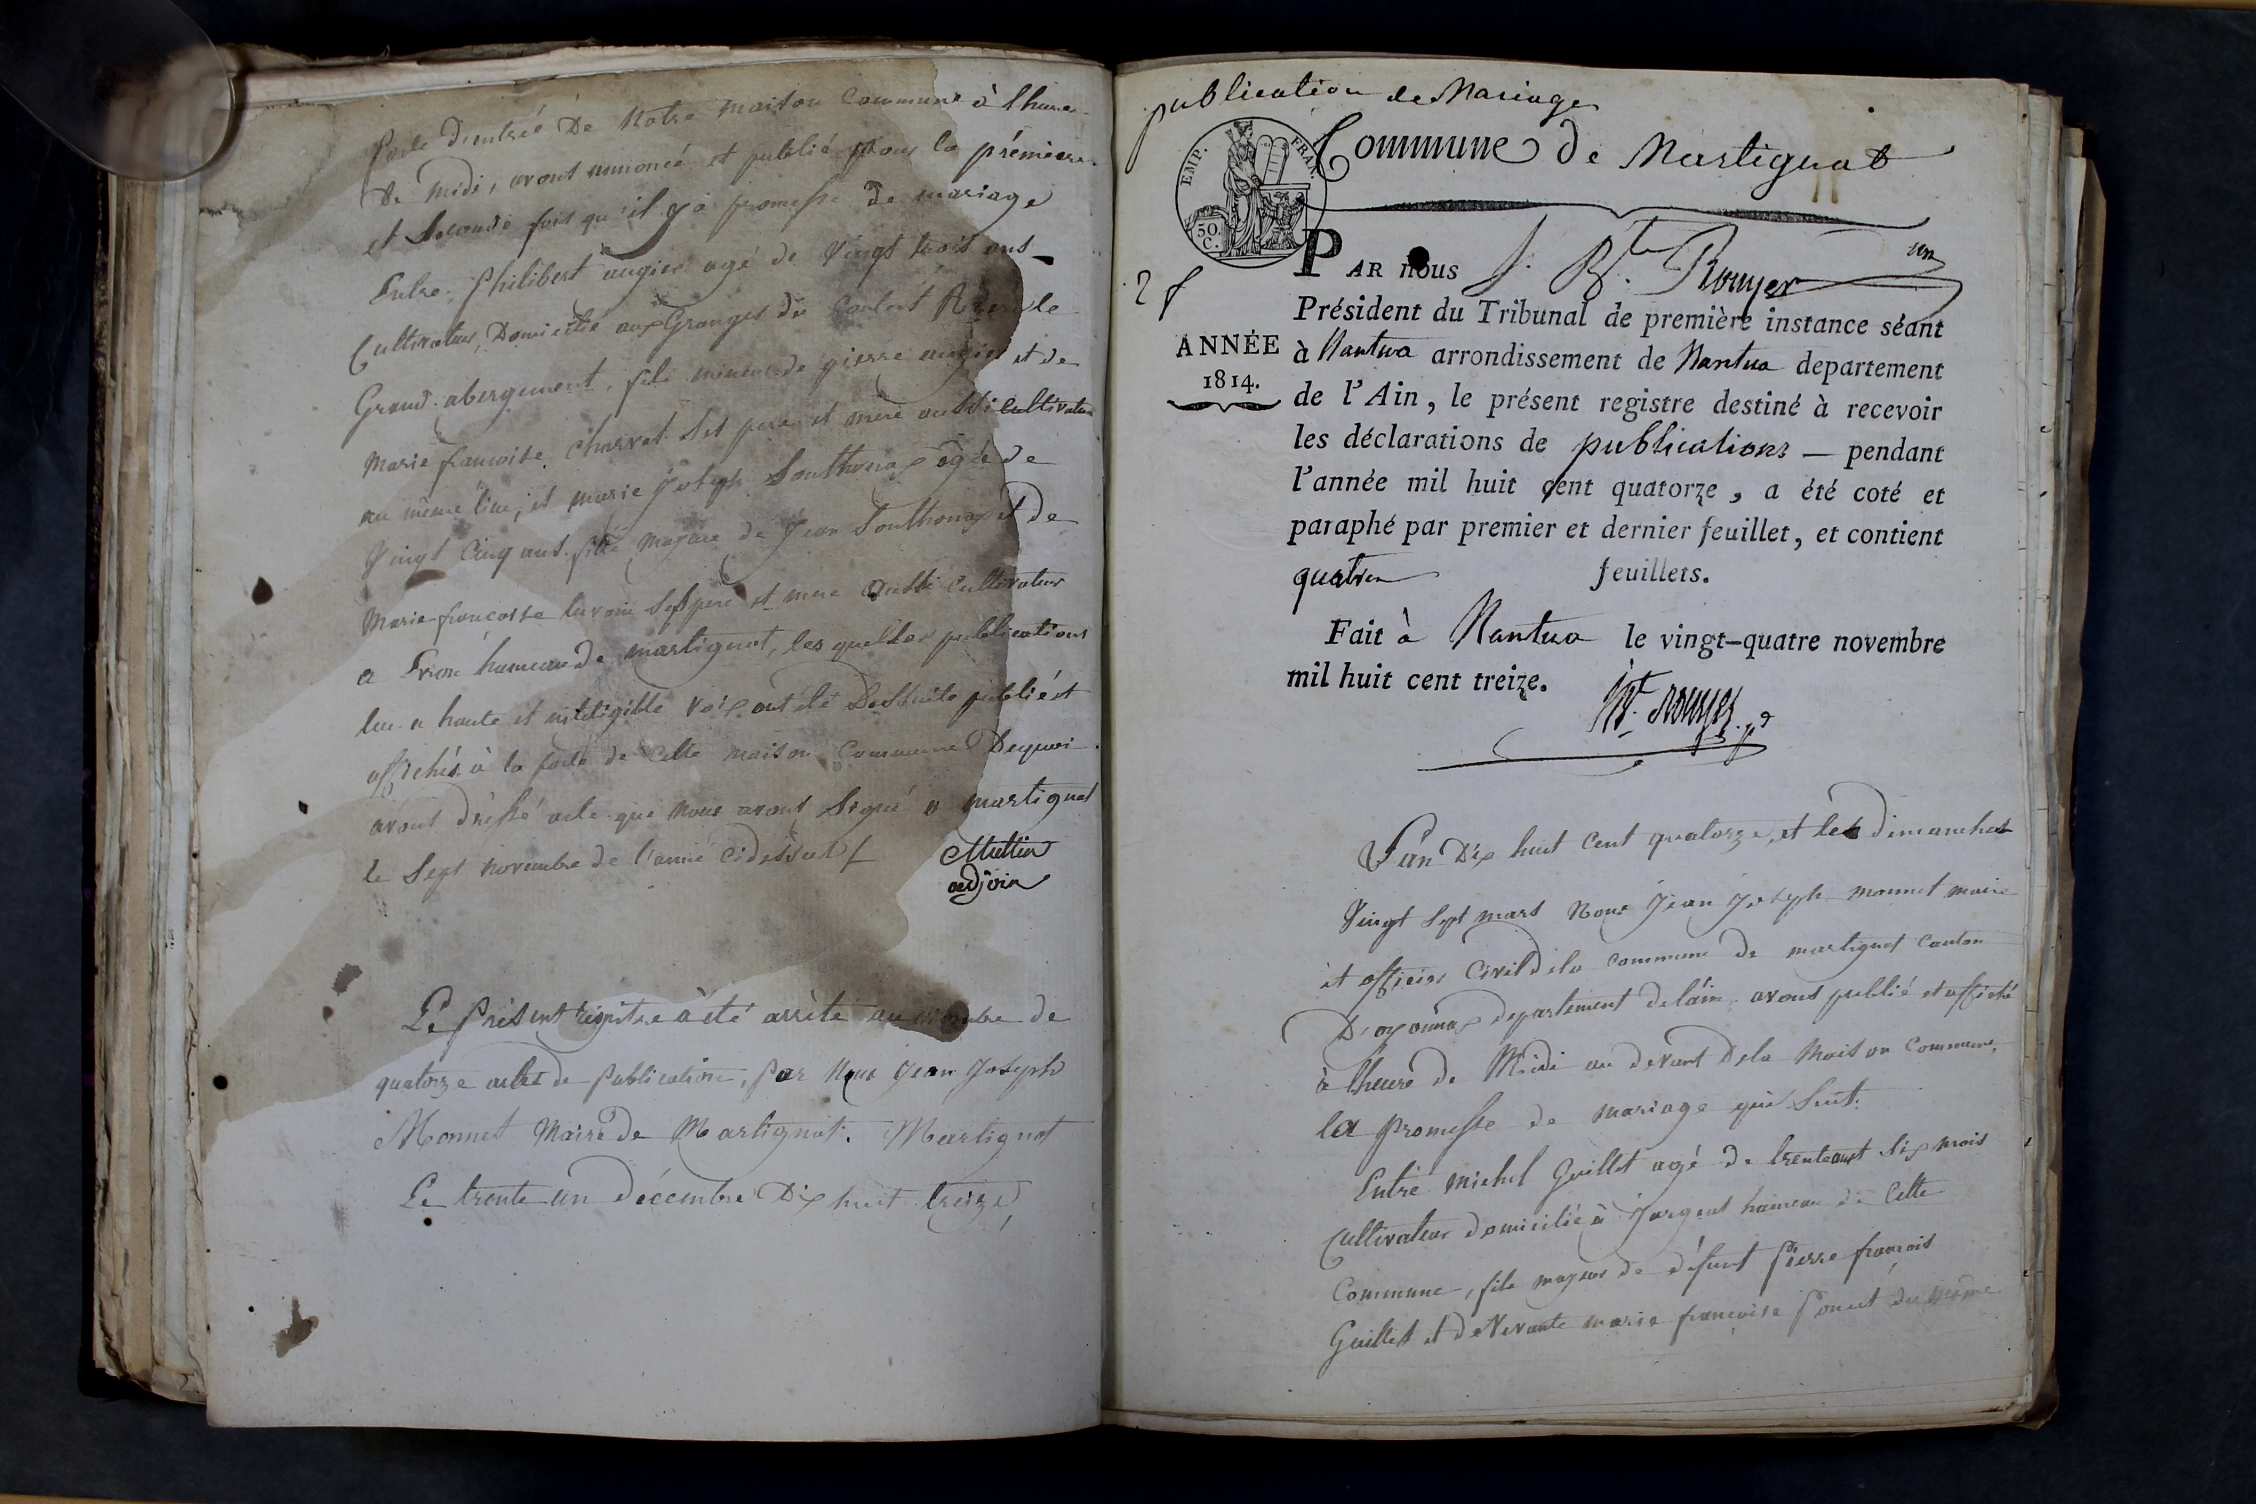 porte d'entrée De Notre maison Commune à lheure
De midi, avons annoncé et publié pour la prémiere
et Seconde fois qu'il y a promesse de mariage
Entre Philibert augier agé de Vingt trois ans
Cultivateur, Domicilié aux Granges du
Grand abergement, fils mineur de pierre augier et de
Marie francoise Charvet Ses pere et mere aussi Cultivateur
au même lieu, et marie Joseph Southonax agée de
Vingt Cinq ans fille majeure de Jean Southonax et de
Marie francoise Ses pere et mere aussi Cultivateur
a hameau de martignat, les quelles publications
lue a haute et inteligible Voix ont été De Suite publié et
affichés à la porte de Cette maison Commune Dequoi
avons dréssé acte que Nous avons Signé a martignat
le Sept novembre de l'année cidessus
adjoin
Le présent régistre à été arrèté au nombre de
quatorze actes de publication, par Nous Jean Joseph
Monnet Maire de Martignat. Martignat
Le trente un décembre Dix huit treize
publication de Mariage
Commune de Martignat
EMP. FRAN.
50. C.
2 f
ANNÉE
1814.
PAR nous J. Bte Rouyer
un
Président du Tribunal de première instance séant
à Nantua arrondissement de Nantua departement
de l'Ain, le présent registre destiné à recevoir
les déclarations de publications — pendant
l'année mil huit cent quatorze, a été coté et
paraphé par premier et dernier feuillet, et contient
quatre feuillets.
Fait à Nantua le vingt-quatre novembre
mil huit cent treize.
Bt. rouyer pt
L'an Dix huit Cent quatorze, et les dimanches
Vingt Sept mars Nous Jean Joseph monnet maire
et officier Civil dela commune de martignat canton
D'oyonnax departement delain avons publié et affiché
à lheure de Midi au devant Dela Maison commune,
la promesse de mariage qui Suit.
Entre michel Guillet agé de trente ans Six mois
Cultivateur domicilié à Jargeat hameau de Cette
Commune, fils majeur de défunt Pierre francois
Guillet et de Vivante marie francoise Poncet du même